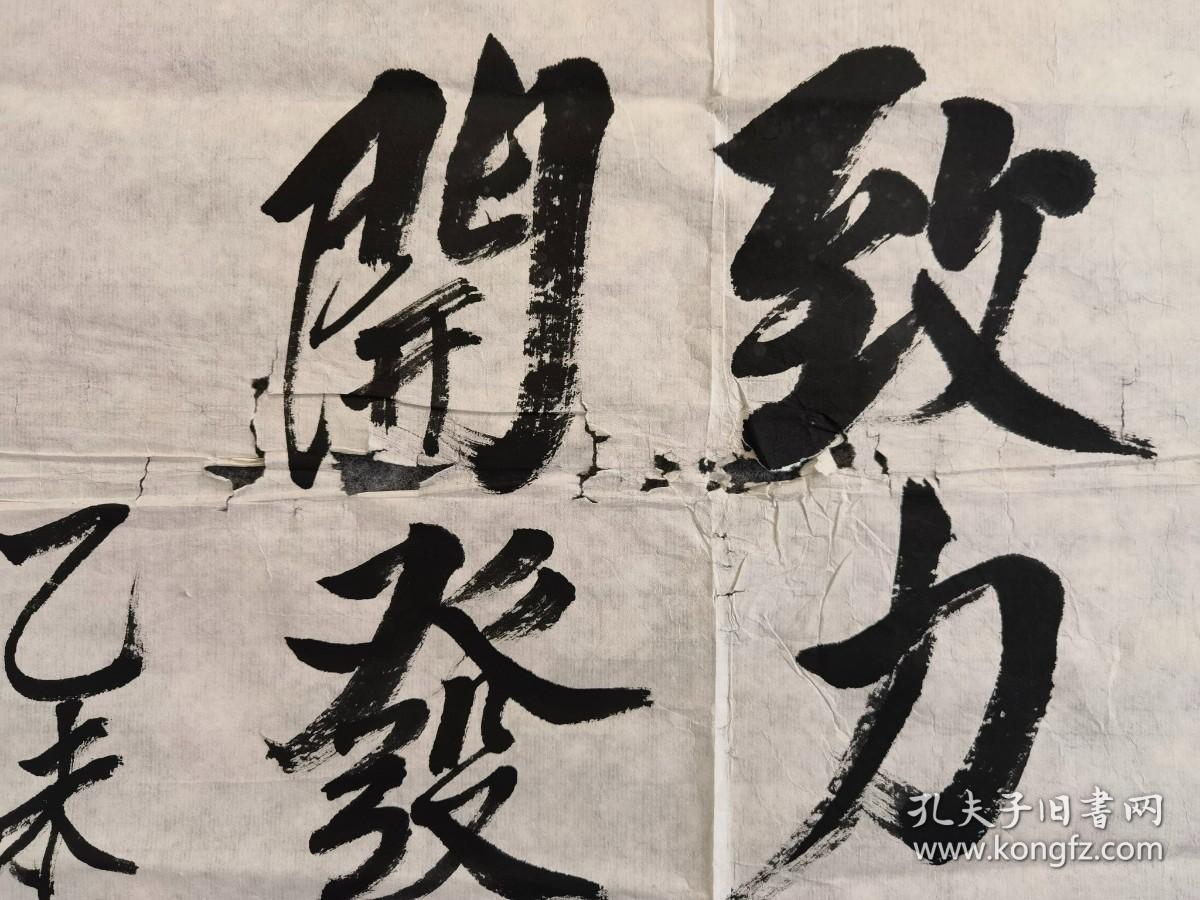 致力
開發
乙未
孔夫子旧書网
www.kongfz.com